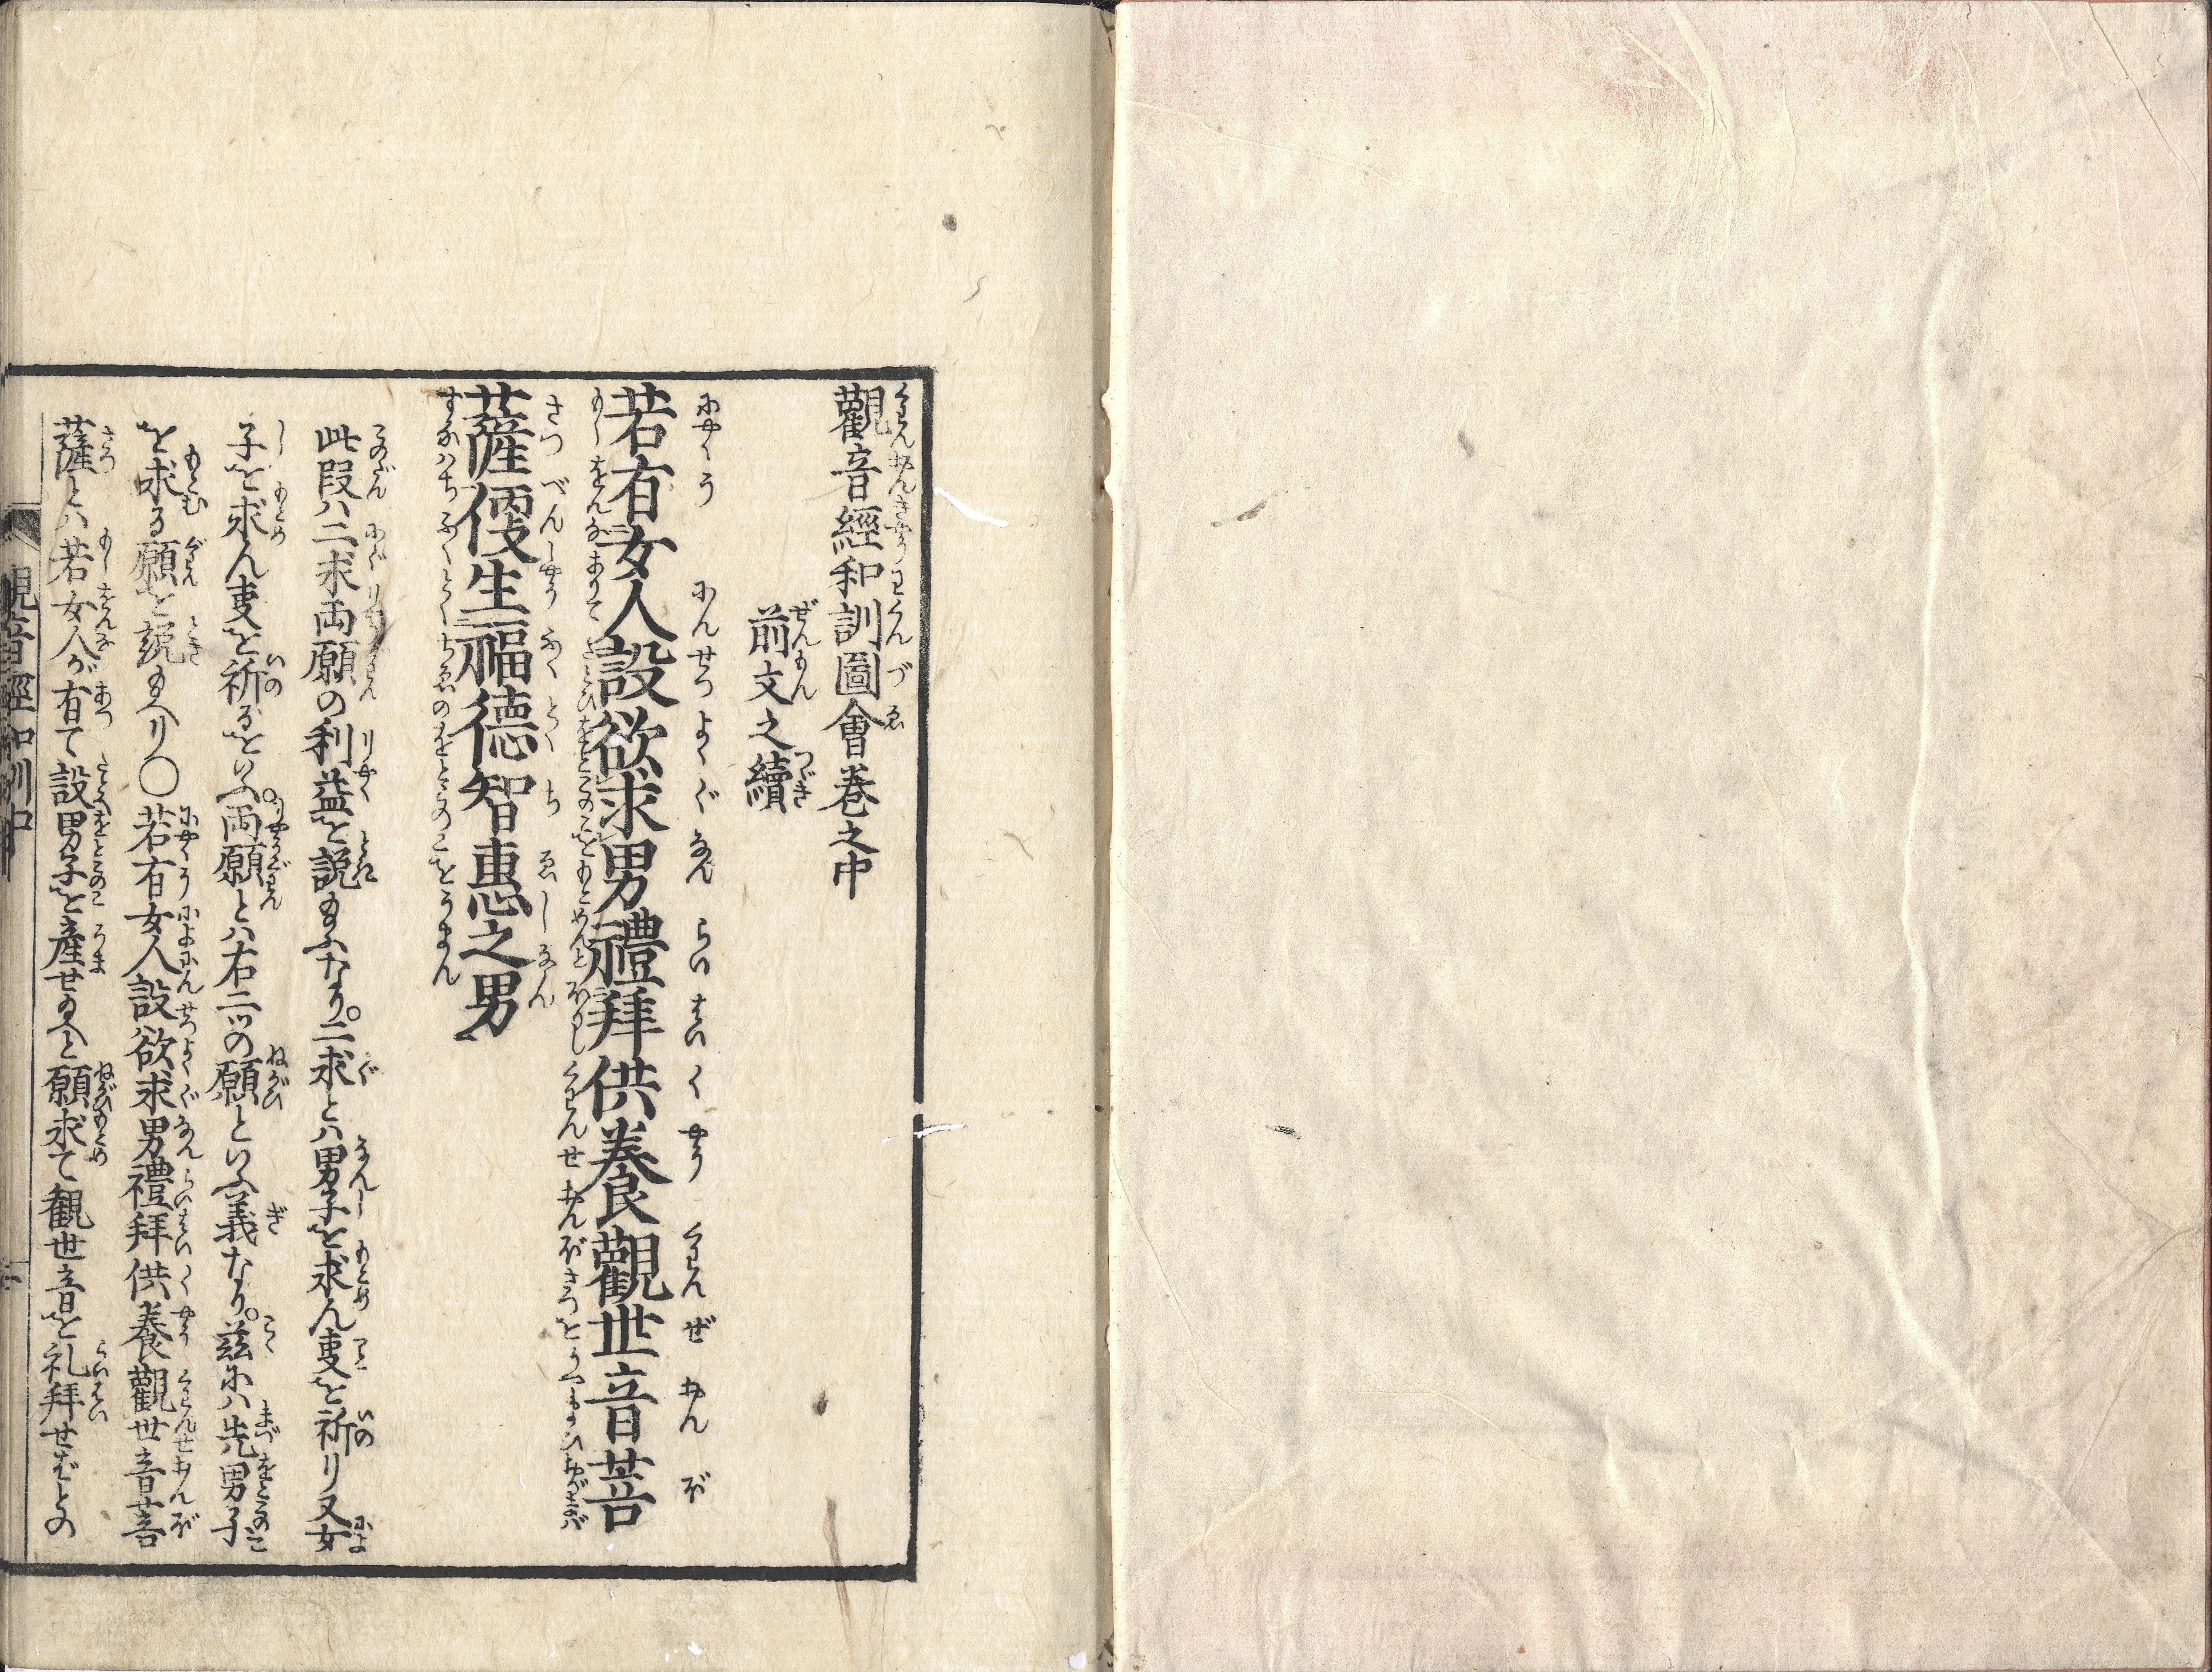 觀音經和訓圖會巻之中
前文之續
若有女人設欲求男禮拜供養觀世音菩
薩便生福德智惠之男
此段ハ二求両願の利益を説給ふなり。二求とハ男子を求ん事を祈り又女
子を求ん事を祈るをいふ。両願とハ右二ツの願といふ義なり。茲にハ先男子
を求る願を説給へり〇若有女人設欲求男禮拜供養觀世音菩
薩とハ若女人が有て設男子を産せ給へと願求て観世音を礼拜せばとの
觀音經和訓中